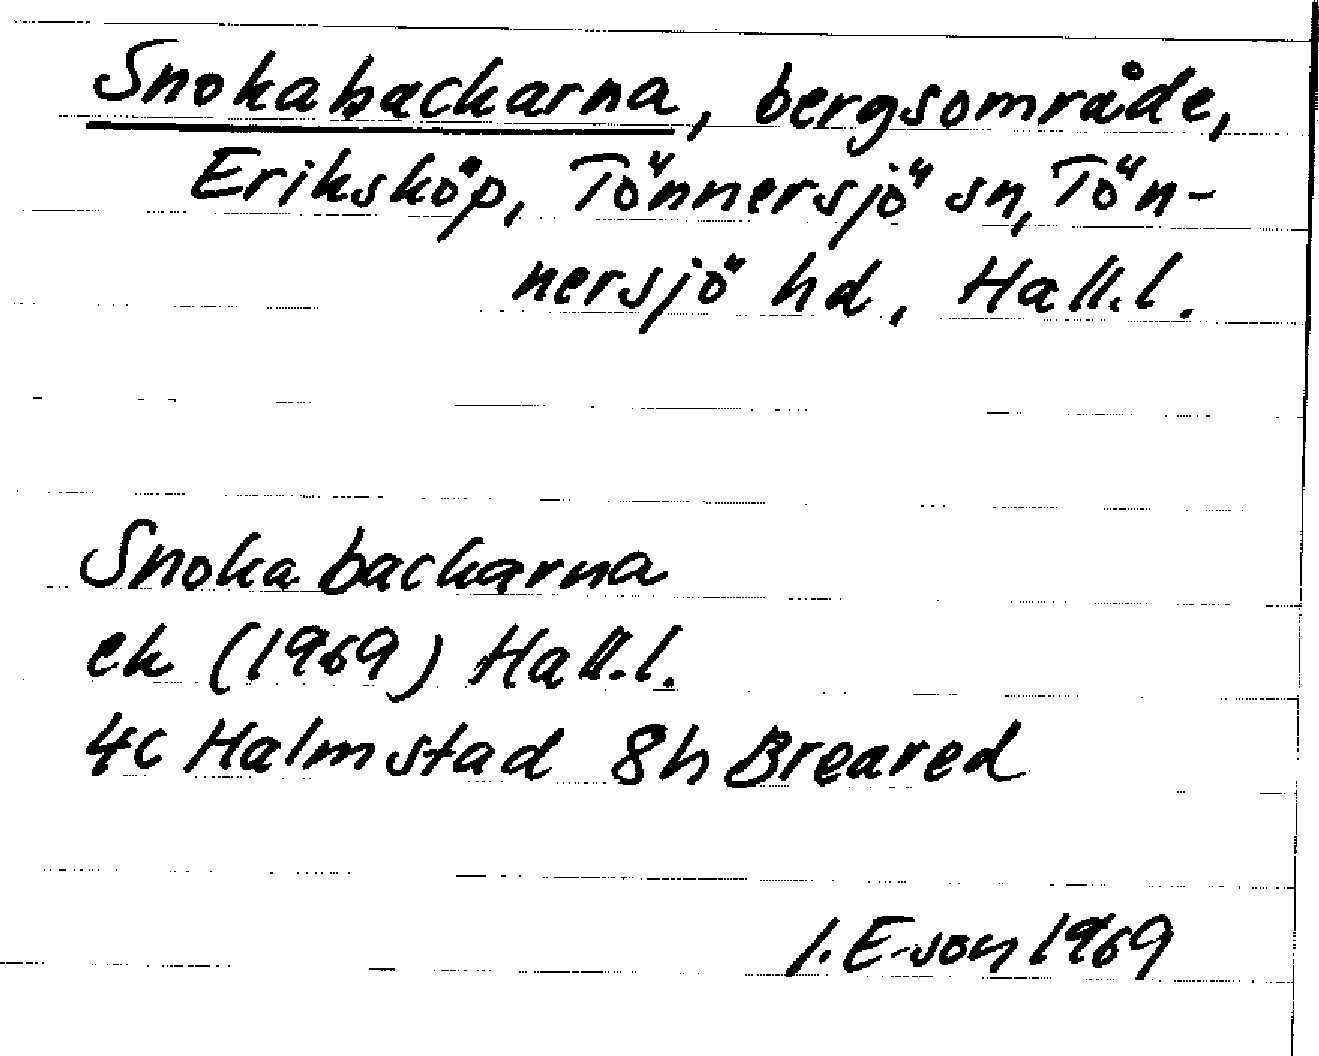 Snokabackarna, bergsområde,
Eriksköp, Tönnersjö sn, Tön-
nersjö hd, Hall.l.
Snokabackarna
ek (1969) Hall.l.
4c Halmstad 8h Breared
I. E-son 1969